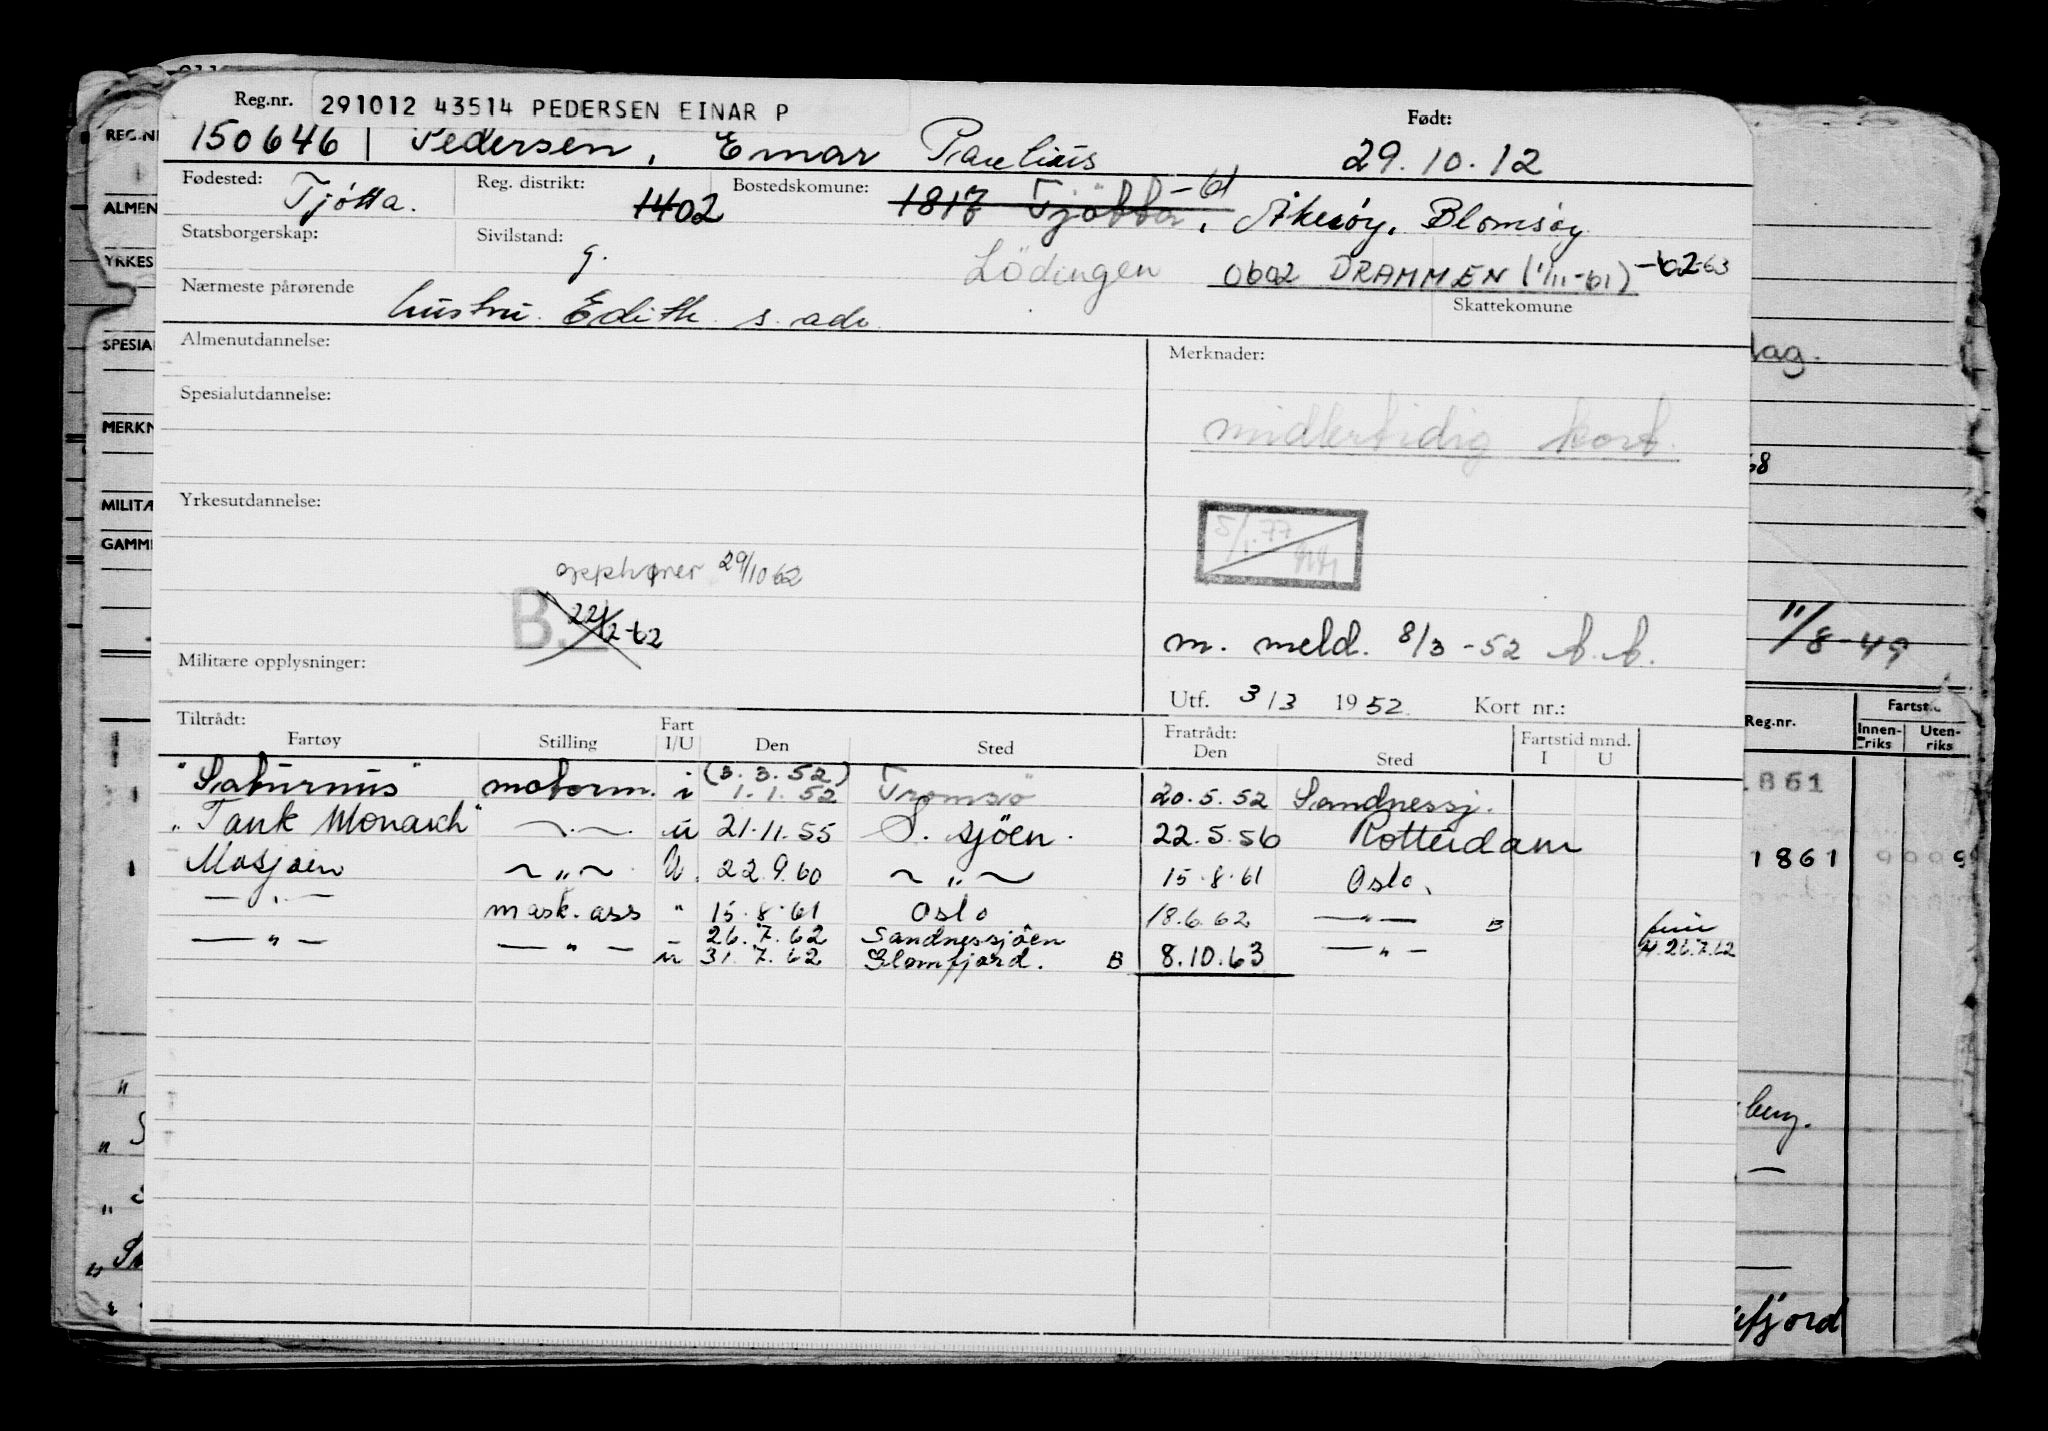 Reg.nr. 291012 43514 PEDERSEN EINAR P Født:
150646 Pedersen, Einar Paulius 29.10.12
Fødested: Tjøtta. Reg. distrikt: 1402 Bostedskomune: 1817 Tjøtta -61, Åkerøy, Blomsøy
Statsborgerskap: Sivilstand: g. Lödingen 0602 DRAMMEN (1/11-61) -62-63
Nærmeste pårørende hustru Edith s. adr. Skattekomune
Almenutdannelse: Merknader:
Spesialutdannelse: midlertidig kort.
Yrkesutdannelse: 5/1.77
opphører 29/10 62
B. 22/2-62
m. meld. 8/3-52
Militære opplysninger:
Utf. 3/3 1952 Kort nr.:
Tiltrådt: Fart Fratrådt: Fartstid mnd.
Fartøy Stilling I/U Den Sted Den Sted I U
(3.3.52)
"Saturnus" motorm. i 1.1.52 Tromsø 20.5.52 Sandnessj.
"Tank Monarch" —"— u 21.11.55 S. sjöen. 22.5.56 Rotterdam
Mosjøen —"— U. 22.9.60 —"— 15.8.61 Oslo.
—"— mask. ass " 15.8.61 Oslo 18.6.62 —"— B ferie
—"— —"— 26.7.62 Sandnessjöen 26.7.62
u 31.7.62 Glomfjord. B 8.10.63 —"—
REG.NR
ALMEN
YRKES
SPESIA
MERKN
MILITÆ
GAMM
lag.
68
11/8-49
Reg.nr. Fartst
Innen-riks Uten-riks
1861
1861
berg.
fjord